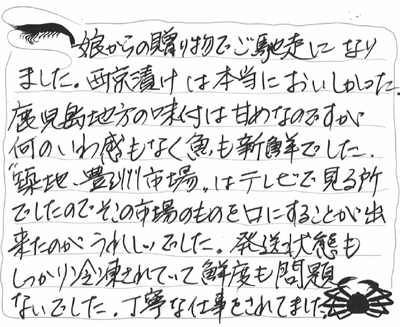 娘からの贈り物でご馳走になり
ました。西京漬けは本当においしかった。
鹿児島地方の味付は甘めなのですが
何のいわ感もなく魚も新鮮でした。
"築地、豊洲市場"はテレビで見る所
でしたのでそこの市場のものを口にすることが出
来たのがうれしいでした。発送状態も
しっかり冷凍されていて鮮度も問題
ないでした。丁寧な仕事をされてました